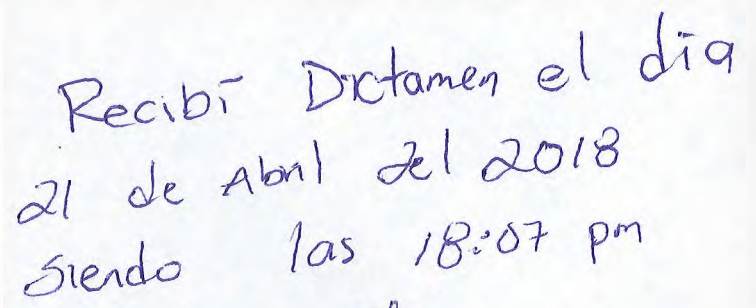 Recibí Dictamen el día
21 de Abril del 2018
siendo las 18:07 pm